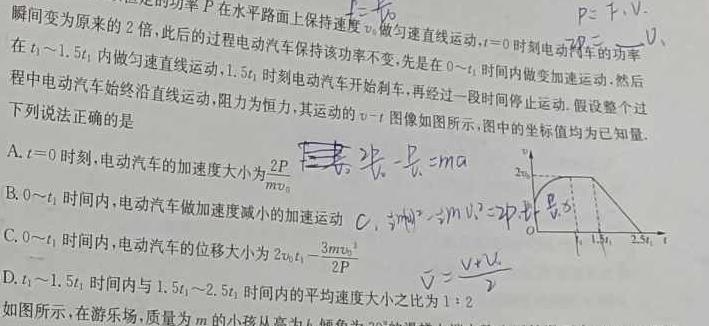 的功率P在水平路面上保持速度v₀做匀速直线运动,t=0时刻电动汽车的功率
瞬间变为原来的2倍,此后的过程电动汽车保持该功率不变,先是在0~t₁时间内做变加速运动.然后
在t₁~1.5t₁内做匀速直线运动,1.5t₁时刻电动汽车开始刹车,再经过一段时间停止运动.假设整个过
程中电动汽车始终沿直线运动,阻力为恒力,其运动的v-t图像如图所示,图中的坐标值均为已知量.
下列说法正确的是
A.t=0时刻,电动汽车的加速度大小为2P/mv₀
B.0~t₁时间内,电动汽车做加速度减小的加速运动
C.0~t₁时间内,电动汽车的位移大小为2v₀t₁-3mv₀³/2P
D.t₁~1.5t₁时间内与1.5t₁~2.5t₁时间内的平均速度大小之比为1:2
如图所示,在游乐场,质量为m的小孩从高为h
P=F·V.
=ma
C.
v
2v₀
0
t₁
1.5t₁
2.5t₁
t